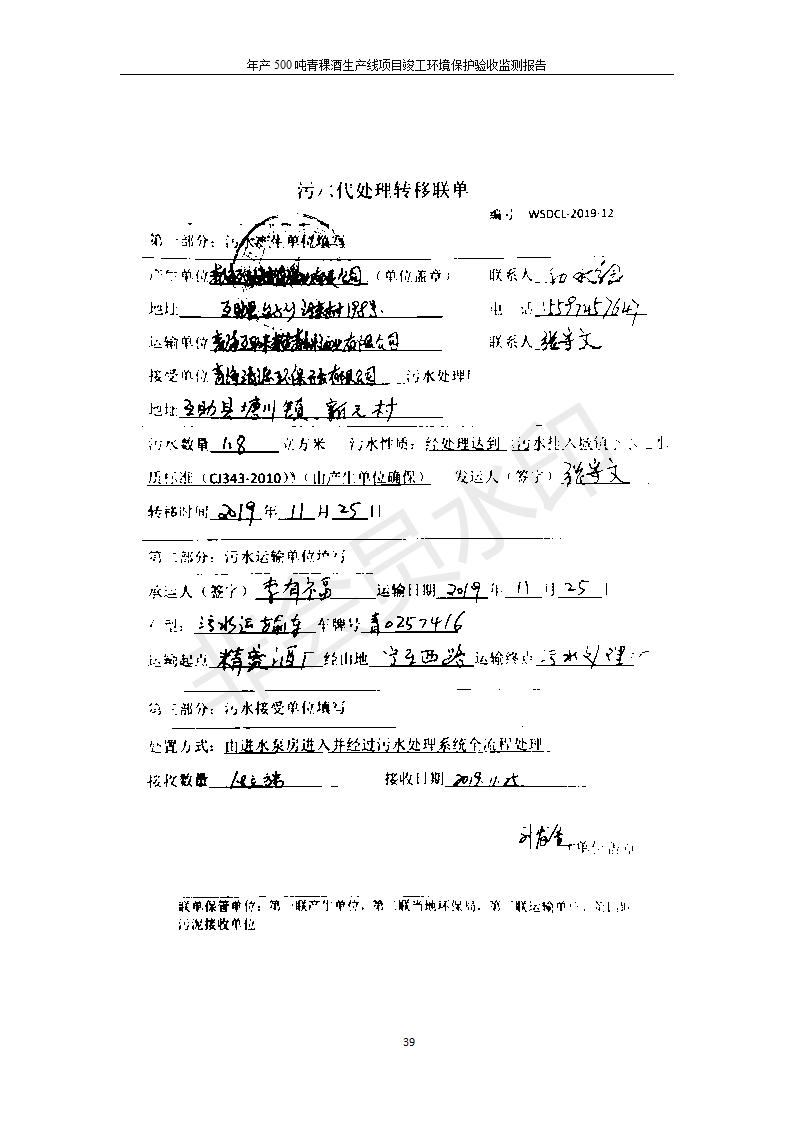 年产 500 吨青稞酒生产线项目竣工环境保护验收监测报告
污水代处理转移联单
编号 WSDCL-2019-12
第一部分：污水产生单位填写
产生单位 有限公司（单位盖章） 联系人
地址 互助县 198号 电 话 15597457647
运输单位 有限公司 联系人 张守文
接受单位 有限公司 污水处理厂
地址 互助县塘川镇 新元村
污水数量 18 立方米 污水性质：经处理达到《污水排入城镇下水道水
质标准（CJ343-2010）》（由产生单位确保） 发运人（签字）张守文
转移时间 2019 年 11 月 25 日
第二部分：污水运输单位填写
承运人（签字）李有福 运输日期 2019 年 11 月 25 日
车型：污水运输车 车牌号 青0257416
运输起点 精 酒厂 经由地 宁互西路 运输终点 污水处理厂
第三部分：污水接受单位填写
处置方式：由进水泵房进入并经过污水处理系统全流程处理
接收数量 接收日期 2019.11.25
单位盖章
联单保管单位：第一联产生单位，第二联当地环保局，第三联运输单位，第四联
污泥接收单位
39
非会员水印